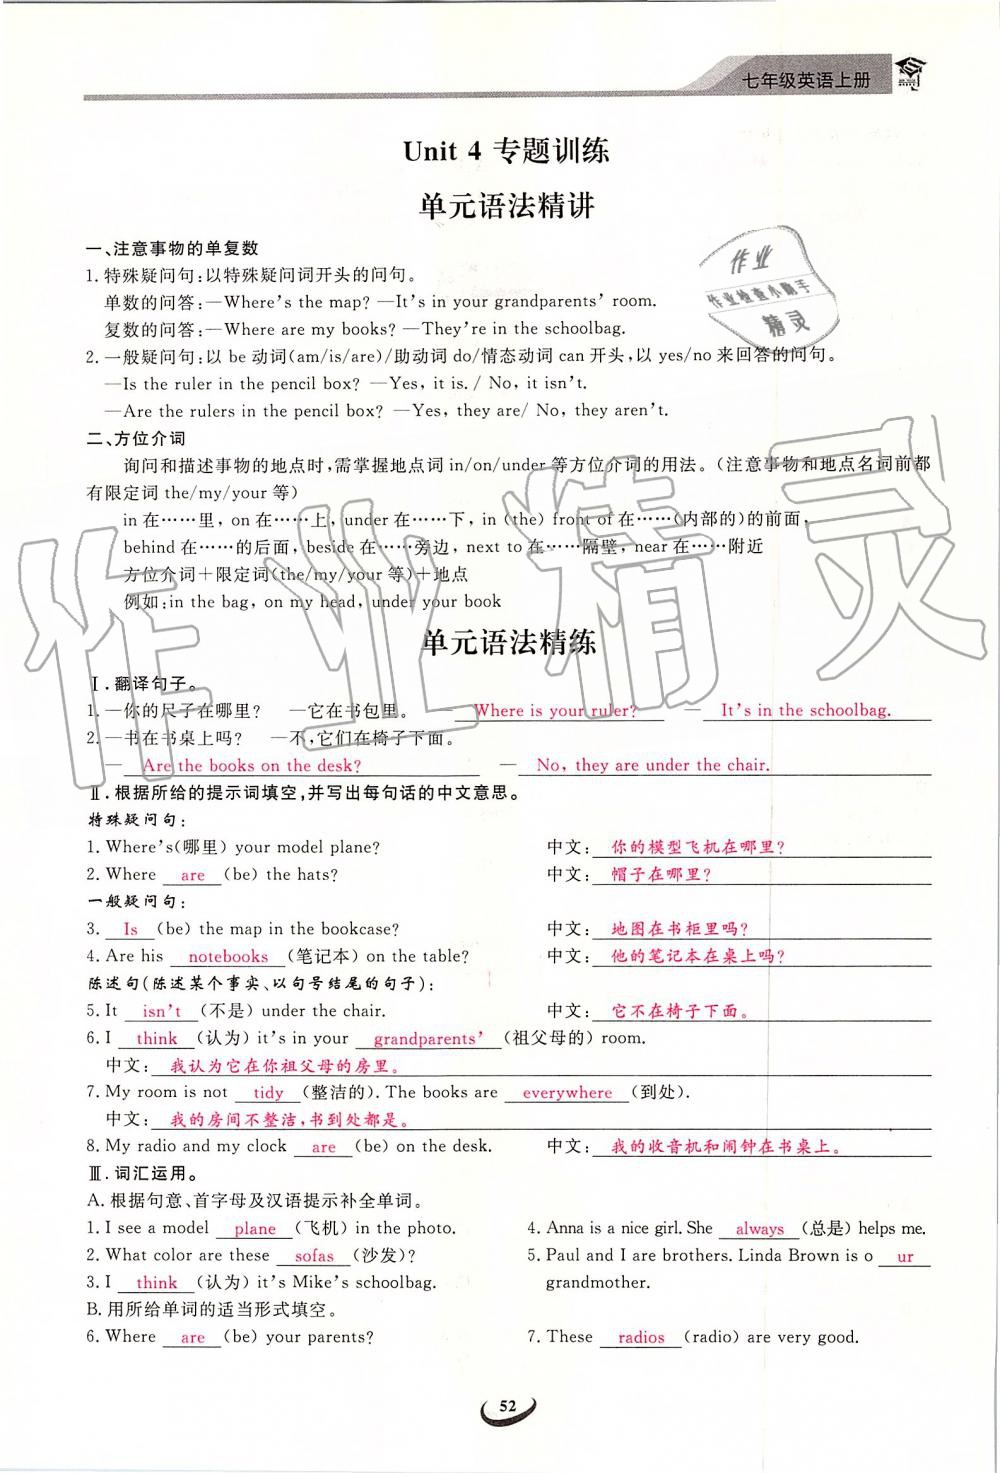 七年级英语上册
Unit 4 专题训练
单元语法精讲
一、注意事物的单复数
1. 特殊疑问句:以特殊疑问词开头的问句。
单数的问答:—Where's the map? —It's in your grandparents' room.
复数的问答:—Where are my books? —They're in the schoolbag.
2. 一般疑问句:以 be 动词(am/is/are)/助动词 do/情态动词 can 开头,以 yes/no 来回答的问句。
—Is the ruler in the pencil box? —Yes, it is. / No, it isn't.
—Are the rulers in the pencil box? —Yes, they are/ No, they aren't.
二、方位介词
询问和描述事物的地点时,需掌握地点词 in/on/under 等方位介词的用法。(注意事物和地点名词前都
有限定词 the/my/your 等)
in 在……里, on 在……上, under 在……下, in (the) front of 在……(内部的)的前面,
behind 在……的后面, beside 在……旁边, next to 在……隔壁, near 在……附近
方位介词+限定词(the/my/your 等)+地点
例如:in the bag, on my head, under your book
单元语法精练
Ⅰ. 翻译句子。
1. —你的尺子在哪里? —它在书包里。 — Where is your ruler? — It's in the schoolbag.
2. —书在书桌上吗? —不,它们在椅子下面。
— Are the books on the desk? — No, they are under the chair.
Ⅱ. 根据所给的提示词填空,并写出每句话的中文意思。
特殊疑问句:
1. Where's(哪里) your model plane? 中文: 你的模型飞机在哪里?
2. Where are (be) the hats? 中文: 帽子在哪里?
一般疑问句:
3. Is (be) the map in the bookcase? 中文: 地图在书柜里吗?
4. Are his notebooks (笔记本) on the table? 中文: 他的笔记本在桌上吗?
陈述句(陈述某个事实、以句号结尾的句子):
5. It isn't (不是) under the chair. 中文: 它不在椅子下面。
6. I think (认为) it's in your grandparents' (祖父母的) room.
中文: 我认为它在你祖父母的房里。
7. My room is not tidy (整洁的). The books are everywhere (到处).
中文: 我的房间不整洁,书到处都是。
8. My radio and my clock are (be) on the desk. 中文: 我的收音机和闹钟在书桌上。
Ⅲ. 词汇运用。
A. 根据句意、首字母及汉语提示补全单词。
1. I see a model plane (飞机) in the photo.
2. What color are these sofas (沙发)?
3. I think (认为) it's Mike's schoolbag.
4. Anna is a nice girl. She always (总是) helps me.
5. Paul and I are brothers. Linda Brown is o ur
grandmother.
B. 用所给单词的适当形式填空。
6. Where are (be) your parents?
7. These radios (radio) are very good.
52
作业
作业检查小助手
精灵
作业精灵